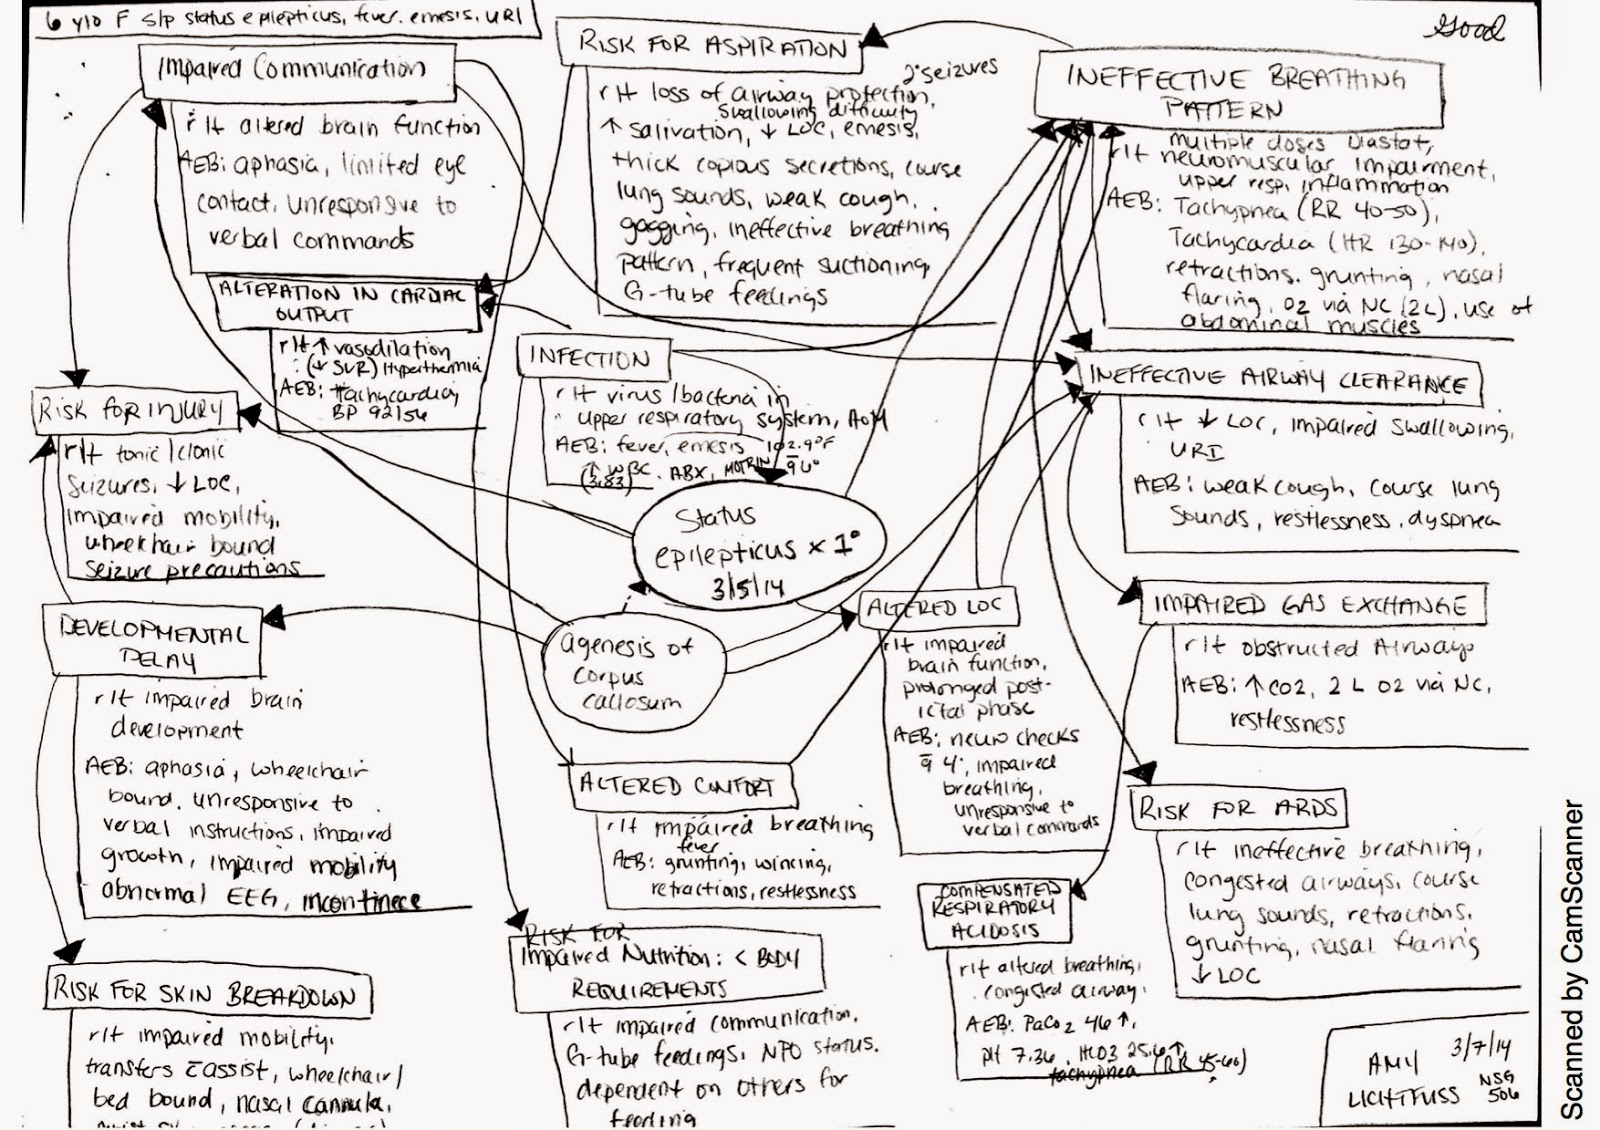 6 y/o F s/p status epilepticus, fever, emesis, URI
Good
Impaired Communication
r/t altered brain function
AEB: aphasia, limited eye
contact, unresponsive to
verbal commands
RISK FOR ASPIRATION
2° seizures
r/t loss of airway protection,
swallowing difficulty
↑ salivation, ↓ LOC, emesis,
thick copious secretions, course
lung sounds, weak cough,
gagging, ineffective breathing
pattern, frequent suctioning,
G-tube feedings
INEFFECTIVE BREATHING
PATTERN
multiple doses Diastat,
r/t neuromuscular impairment,
upper resp. inflammation
AEB: Tachypnea (RR 40-50),
Tachycardia (HR 130-140),
retractions, grunting, nasal
flaring, O2 via NC (2L), use of
abdominal muscles
ALTERATION IN CARDIAC
OUTPUT
r/t ↑ vasodilation
(↓ SVR) Hyperthermia
AEB: tachycardia,
BP 92/56
INFECTION
r/t virus/bacteria in
upper respiratory system, AOM
AEB: fever, emesis 102.9°F
↑ WBC, ABX, MOTRIN q 6°
(3.83)
INEFFECTIVE AIRWAY CLEARANCE
r/t ↓ LOC, impaired swallowing,
URI
AEB: weak cough, course lung
sounds, restlessness, dyspnea
RISK FOR INJURY
r/t tonic/clonic
seizures, ↓ LOC,
impaired mobility,
wheelchair bound
seizure precautions
Status
epilepticus x 1°
3/5/14
agenesis of
corpus
callosum
DEVELOPMENTAL
DELAY
r/t impaired brain
development
AEB: aphasia, wheelchair
bound, unresponsive to
verbal instructions, impaired
growth, impaired mobility
abnormal EEG, incontinece
ALTERED LOC
r/t impaired
brain function,
prolonged post-
ictal phase
AEB: neuro checks
q 4°, impaired
breathing,
unresponsive to
verbal commands
IMPAIRED GAS EXCHANGE
r/t obstructed Airways
AEB: ↑ CO2, 2 L O2 via NC,
restlessness
ALTERED COMFORT
r/t impaired breathing
fever
AEB: grunting, wincing,
retractions, restlessness
RISK FOR ARDS
r/t ineffective breathing,
congested airways, course
lung sounds, retractions,
grunting, nasal flaring
↓ LOC
COMPENSATED
RESPIRATORY
ACIDOSIS
r/t altered breathing,
congested airway,
AEB: PaCO2 46 ↑,
pH 7.36, HCO3 25.6 ↑
tachypnea (RR 45-60)
RISK FOR SKIN BREAKDOWN
r/t impaired mobility,
transfers c̄ assist, wheelchair/
bed bound, nasal cannula,
RISK FOR
Impaired Nutrition: < BODY
REQUIREMENTS
r/t impaired communication,
G-tube feedings, NPO status,
dependent on others for
feeding
AMY
LICHTFUSS
3/7/14
NSG
506
Scanned by CamScanner